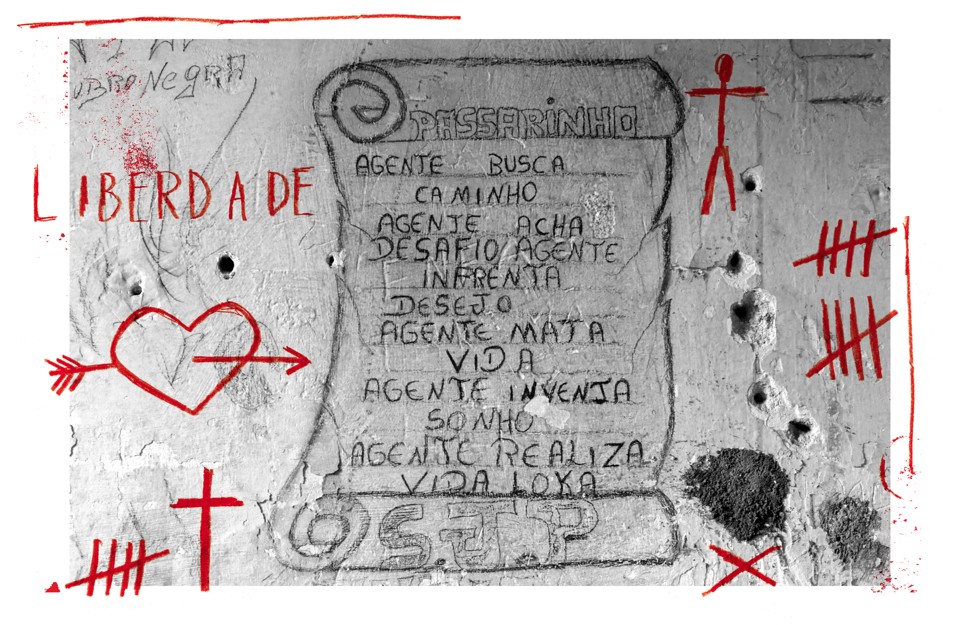 UBRO NegRA
LIBERDADE
PASSARiNHO
AGENTE BUSCA
CAMINHO
AGENTE ACHA
DESAFIO AGENTE
INFRENTA
DESEJO
AGENTE MATA
VIDA
AGENTE iNVENTA
SONHO
AGENTE REALIZA
VIDA LOKA